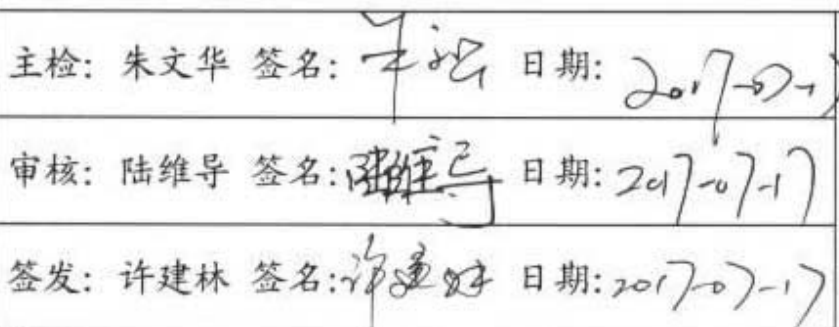 主检: 朱文华 签名: 日期: 2017-07-1
审核: 陆维导 签名: 陆维导 日期: 2017-07-17
签发: 许建林 签名: 许建林 日期: 2017-07-17